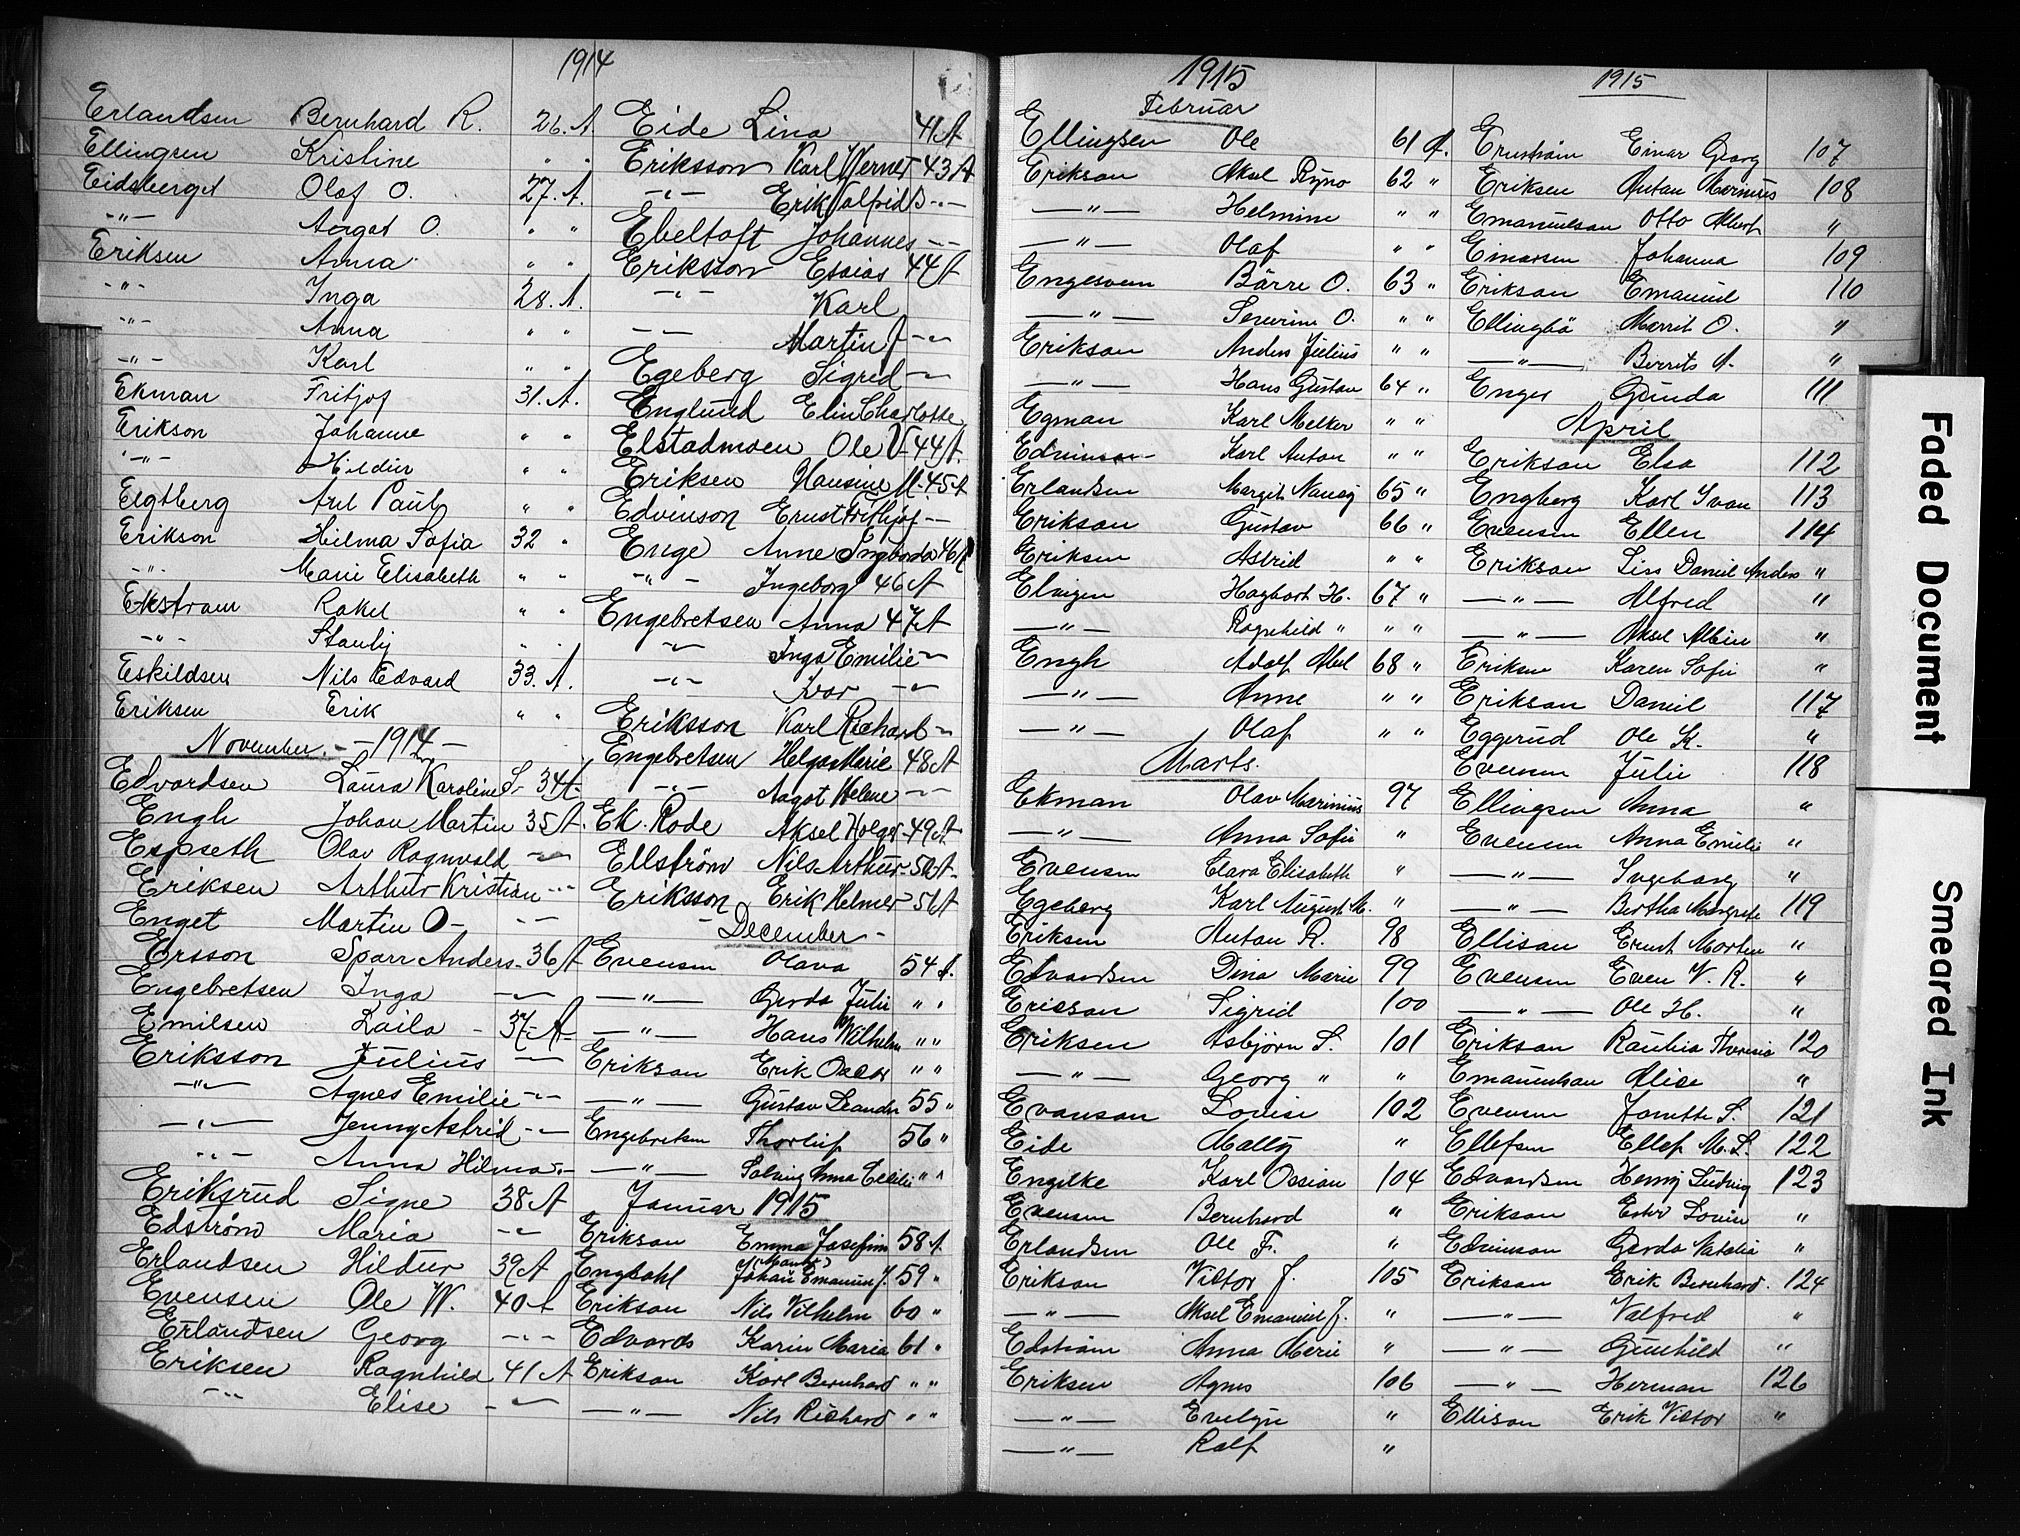 1914
Erlandsen Bernhard R. 26. A.
Ellingsen Kristine " "
Eidsberget Olaf O. 27. A.
-"- Aagot O. " "
Eriksen Anna " "
-"- Inga 28. A.
-"- Anna " "
-"- Karl " "
Ekman Fritjof 31. A.
Erikson Johanne " "
-"- Hildur " "
Elgtberg Axel Paul " "
Erikson Hilma Sofia 32 "
-"- Marie Elisabeth " "
Ekstrom Rakel " "
-"- Stanly " "
Eskildsen Nils Edvard 33. A.
Eriksen Erik " "
November - 1914 -
Edvardsen Laura Karoline S- 34A-
Engh Johan Martin 35A.
Espseth Olav Ragnvald -"-
Eriksen Arthur Kristian -"-
Enget Martin O- -"-
Ersson Sparr Anders- 36A
Engebretsen Inga -"-
Emilsen Laila - 37-A
Eriksson Julius -"-
-"- Agnes Emilie -"-
-"- Jenny Astrid -"-
-"- Anna Hilma -"-
Eriksrud Signe 38A
Edstrøm Maria -"-
Erlandsen Hildur 39A
Evensen Ole W. 40A
Erlandsen Georg -"-
Eriksen Ragnhild 41A
-"- Elise -"-
Eide Lina 41A
Eriksson Karl Werner 43A
-"- Erik Valfrid -"-
Ebeltoft Johannes -"-
Eriksson Esaias 44A
-"- Karl
-"- Martin J -"-
Egeberg Sigrid -"-
Englund Elin Charlotte
Elstadmoen Ole V- 44A.
Eriksen Hansine M- 45A
Edvinson Ernst Frithjof -"-
Enge Anne Ingborda 46A
-"- Ingeborg 46A
Engebretsen Anna 47A
-"- Inga Emilie -"-
-"- Ivar -"-
Eriksson Karl Richard -"-
Engebretsen Helga Marie 48A
-"- Aagot Helene -"-
Ek. Rode Aksel Holger- 49A-
Ellstrøm Nils Arthur- 50A-
Eriksson Erik Helmer 51A
- December -
Evensen Olava 54A.
-"- Gerda Julie " "
-"- Hans Wilhelm " "
Erikson Erik Oscar " "
-"- Gustav Leander 55 "
Engebretsen Thorleif 56 "
-"- Solveig Anna Cecilie " "
Januar 1915
Erikson Emma Josefine 58A.
Engdahl Johan Emanuel J. 59 "
Erikson Nils Vilhelm 60 "
Edvards Karin Maria 61 "
Erikson Karl Bernhard " "
-"- Nils Richard " "
1915
Februar
Ellingsen Ole 61 A.
Erikson Aksel Byno 62 "
-"- Helmine " "
-"- Olaf " "
Engesveen Börre O. 63 "
-"- Severine O. " "
Erikson Anders Julius " "
-"- Hans Gustav 64 "
Egman Karl Melker " "
Edvinson Karl Anton " "
Erlandsen Margit Nancy 65 "
Erikson Gustav 66 "
Eriksen Astrid " "
Elnigen Hagbart H. 67 "
-"- Ragnhild " " "
Engh Adolf Abel 68 "
-"- Anne " "
-"- Olaf " "
Marts.
Ekman Olav Marinius 97
-"- Anna Sofie "
Evensen Clara Elisabeth "
Egeberg Karl August M. "
Eriksen Anton R. 98
Edvardsen Dina Marie 99
Ericson Sigrid 100
Eriksen Asbjørn S. 101
-"- Georg " "
Evanson Louise 102
Eide Mally "
Engilke Karl Ossian 104
Evensen Bernhard "
Erlandsen Ole F. "
Erikson Victor J. 105
-"- Aksel Emanuel J. "
Edström Anna Marie "
Eriksen Agnes 106
-"- Evelyn "
-"- Ralf "
1915
Ernström Einar Georg 107
Eriksen Anton Marinius 108
Emanuelson Otto Albert "
Einarsen Johanna 109
Erikson Emanuel 110
Ellingbö Marrit O. "
-"- Berrits A. "
Enger Gunda 111
April
Erikson Elsa 112
Engberg Karl Ivan 113
Evensen Ellen 114
Erikson Liss Daniel Anders "
-"- Alfred "
-"- Aksel Albin "
Eriksen Karen Sofie "
Erikson Daniel 117
Eggerud Ole K. "
Evensen Julie 118
Ellingsen Anna "
Evensen Anna Emilie "
-"- Ingeborg "
-"- Bertha Margrete 119
Ellison Ernst Morten "
Evensen Even V. R. "
-"- Ole H. "
Erikson Rauhia Theresia 120
Emanuelson Alice "
Evensen Janette S. 121
Ellefsen Ellef M. S. 122
Edvardsen Henry Ludvig 123
Erikson Ester Louise "
Edvinson Gerda Natalia "
Erikson Erik Bernhard. 124
-"- Valfred "
-"- Gunhild "
-"- Herman 126
Ellison Erik Victor "
Faded Document
Smeared Ink